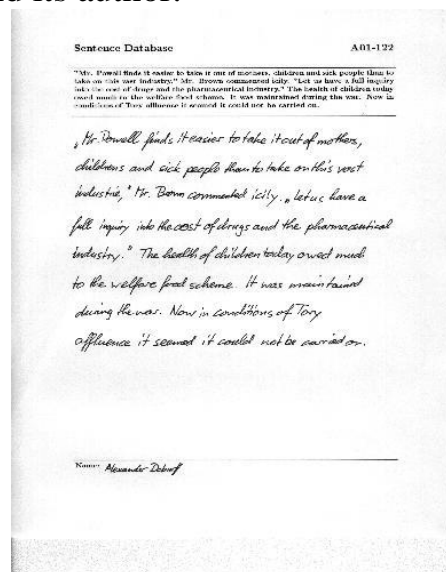 Sentence Database A01-122
"Mr. Powell finds it easier to take it out of mothers, children and sick people than to
take on this vast industry," Mr. Brown commented icily. "Let us have a full inquiry
into the cost of drugs and the pharmaceutical industry." The health of children today
owed much to the welfare food scheme. It was maintained during the war. Now in
conditions of Tory affluence it seemed it could not be carried on.
„Mr. Powell finds it easier to take it out of mothers,
childrens and sick people than to take on this vost
industrie," Mr. Brown commented icily. „Let us have a
full inquiry into the cost of drugs and the pharmaceutical
industry." The health of children today owed much
to the welfare food scheme. It was maintained
during the war. Now in conditions of Tory
affluence it seemed it could not be carried on.
Name: Alexander